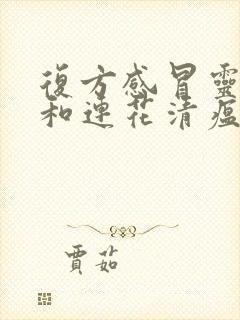 復方感冒靈
和連花清瘟
賈茹